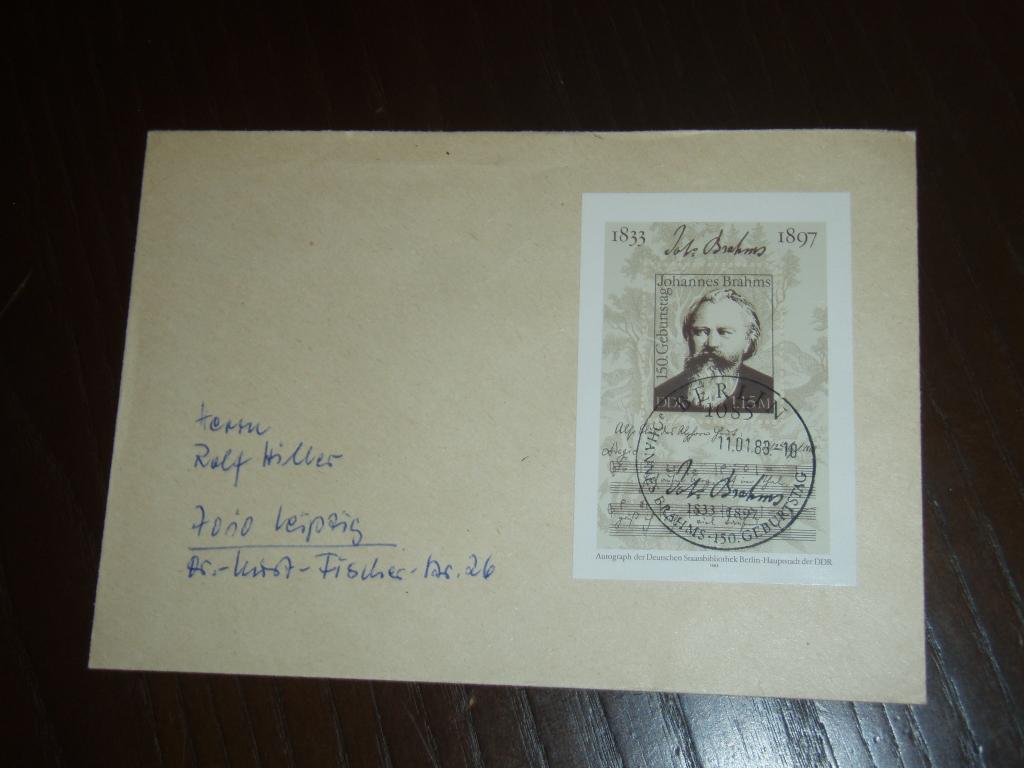 1833 Joh. Brahms 1897
Johannes Brahms
150. Geburtstag
DDR 1,15 M
BERLIN
1085
11.01.83-18
Joh. Brahms
1833 1897
JOHANNES BRAHMS · 150. GEBURTSTAG
Autograph der Deutschen Staatsbibliothek Berlin-Hauptstadt der DDR
Herrn
Rolf Hiller
7010 Leipzig
Dr.-Kurst-Fischer-Str. 26